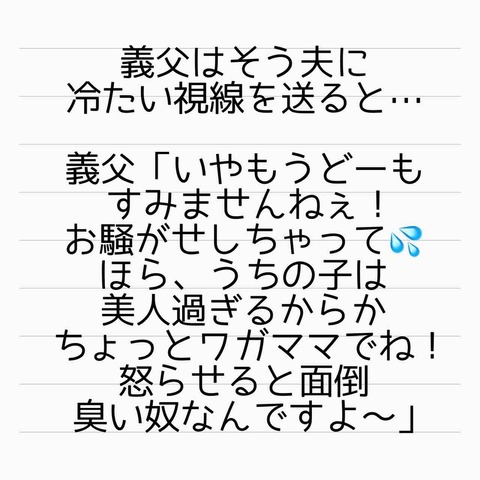 義父はそう夫に
冷たい視線を送ると…
義父「いやもうどーも
すみませんねぇ！
お騒がせしちゃって💦
ほら、うちの子は
美人過ぎるからか
ちょっとワガママでね！
怒らせると面倒
臭い奴なんですよ〜」